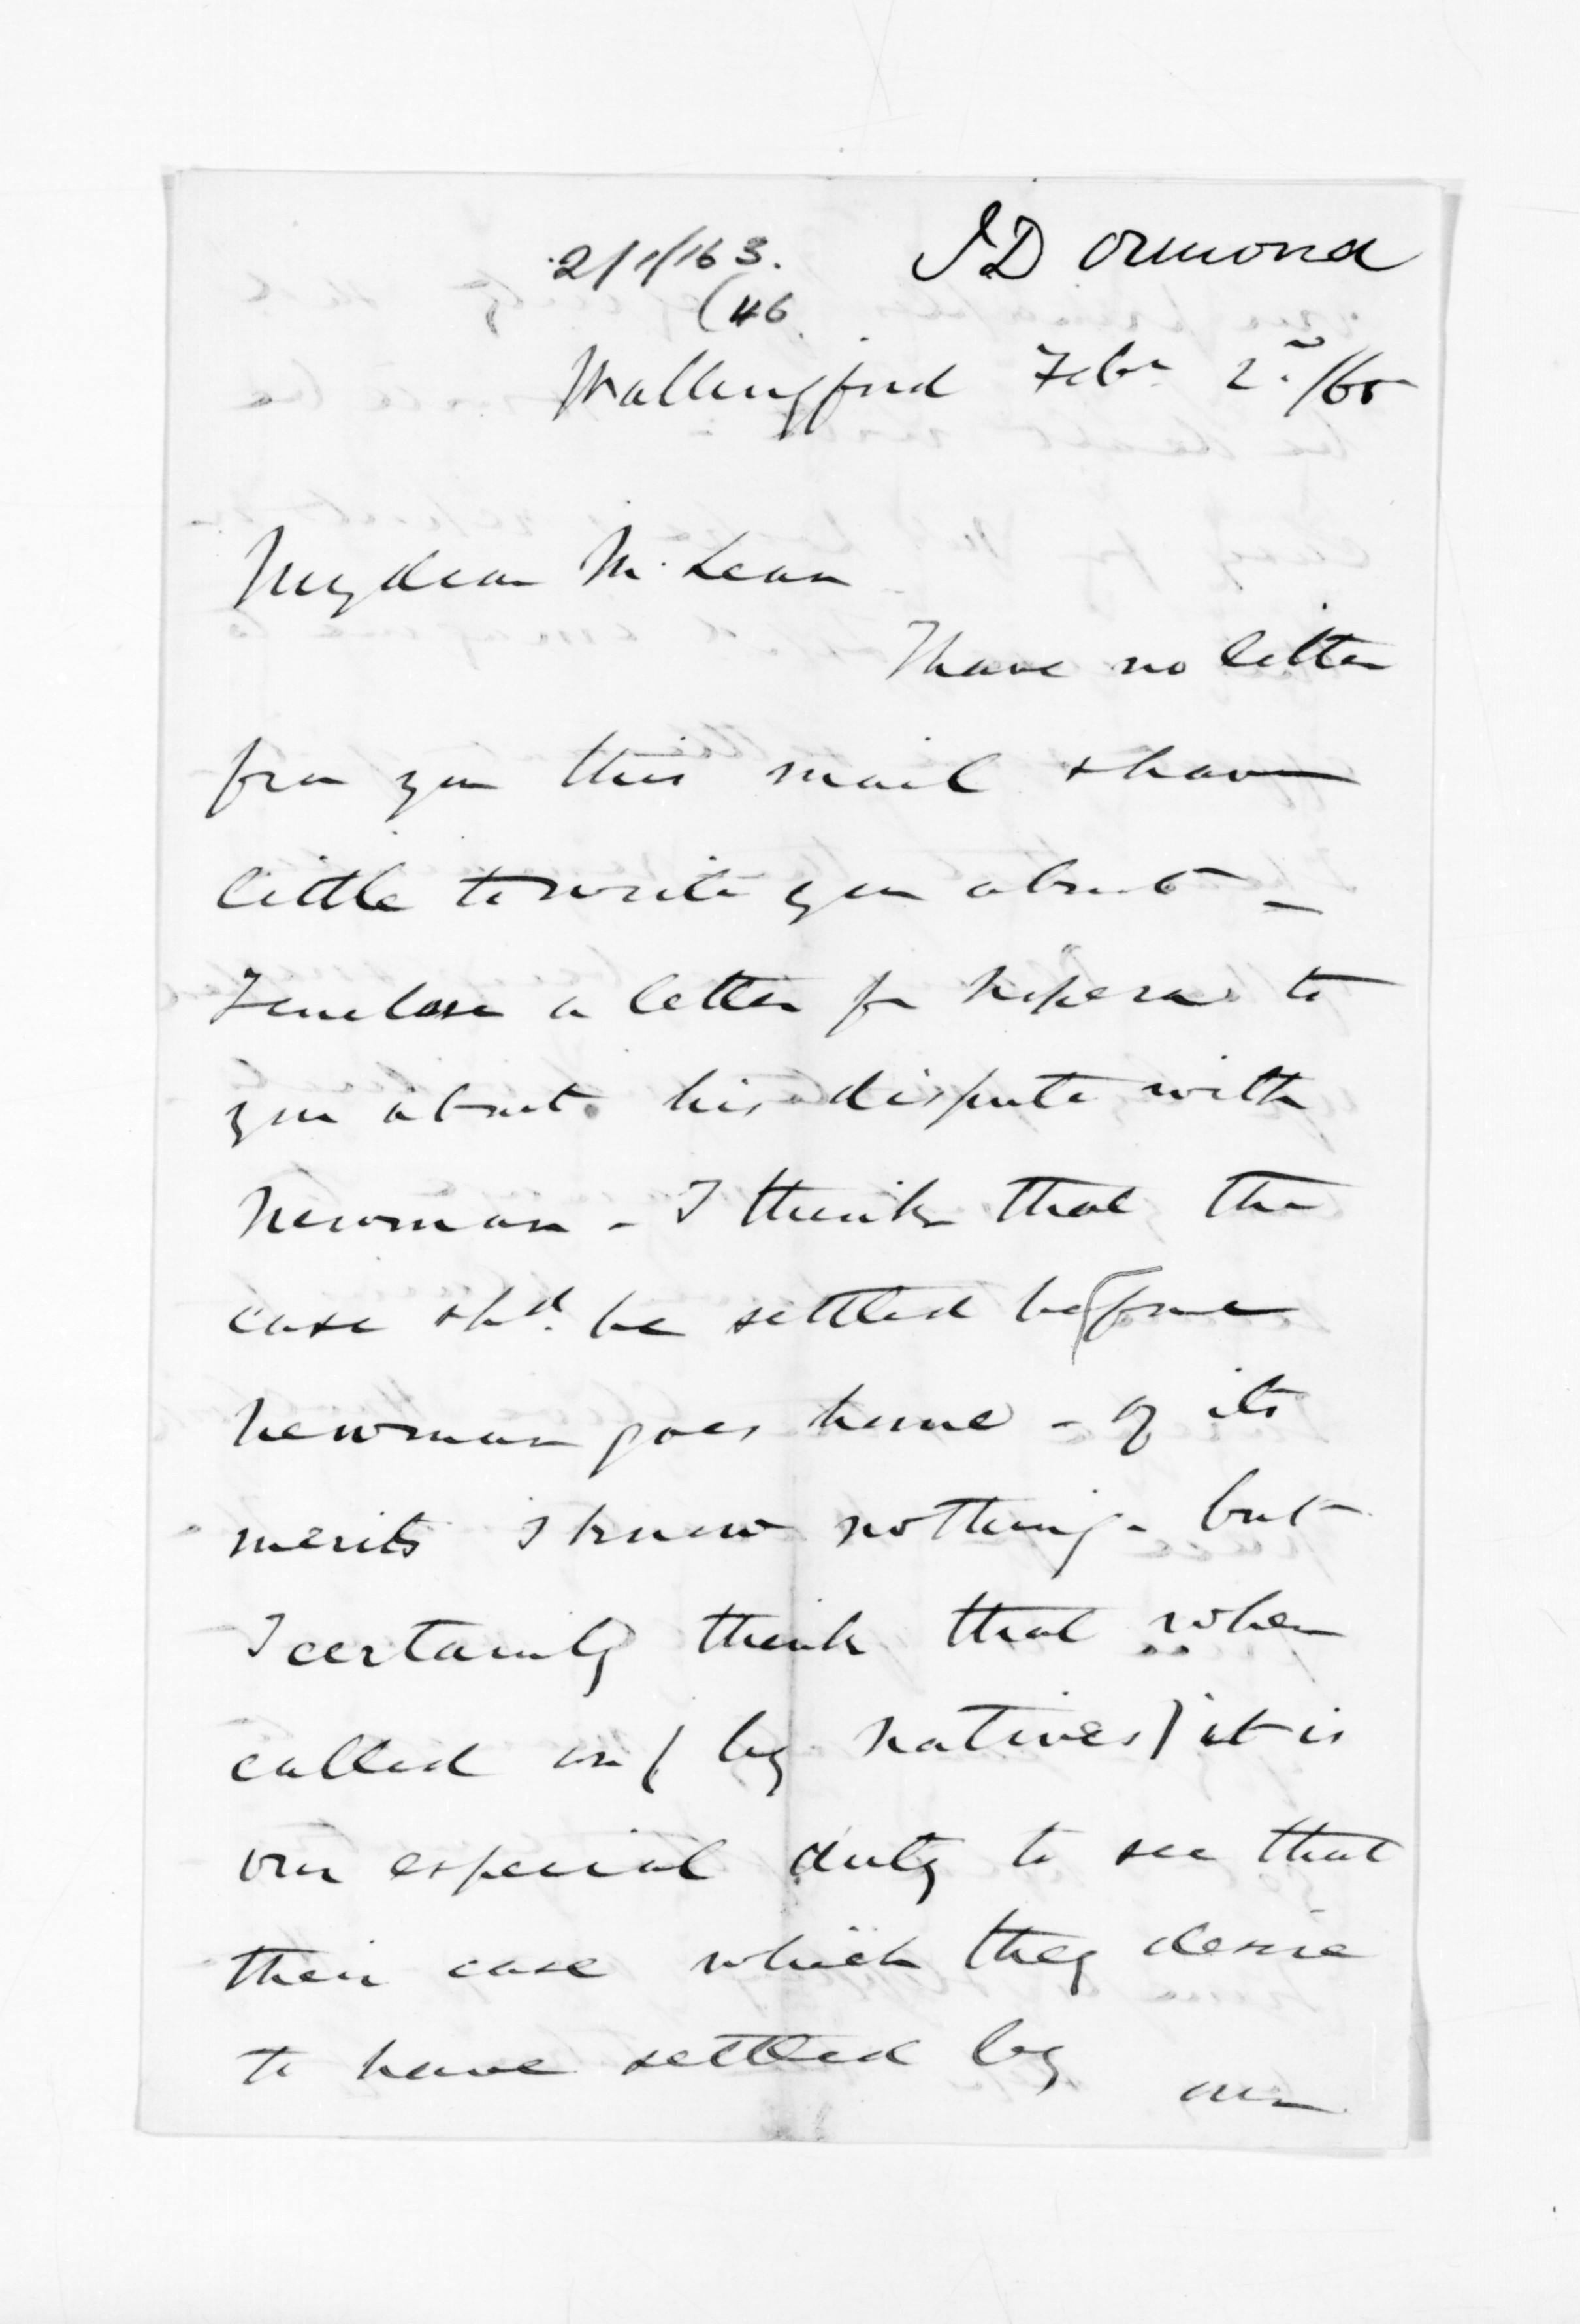 J D Ormond
2/1/163.
(46
Wallingford Feby 2nd/65
My dear McLean
I have no letter
from you this mail & have
little to write you about _
I enclose a letter fr to
you about his dispute with
Newman - I think that the
case shd. be settled before
Newman goes home - of its
merits I know nothing - but
I certainly think that when
called on ( by natives) it is
our especial duty to see that
their case which they desire
to have settled by our